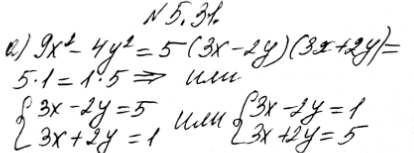 N 5.31.
а) 9x² - 4y² = 5 (3x - 2y)(3x + 2y) =
5·1 = 1·5 ⇒ или
{ 3x - 2y = 5 или { 3x - 2y = 1
{ 3x + 2y = 1 { 3x + 2y = 5